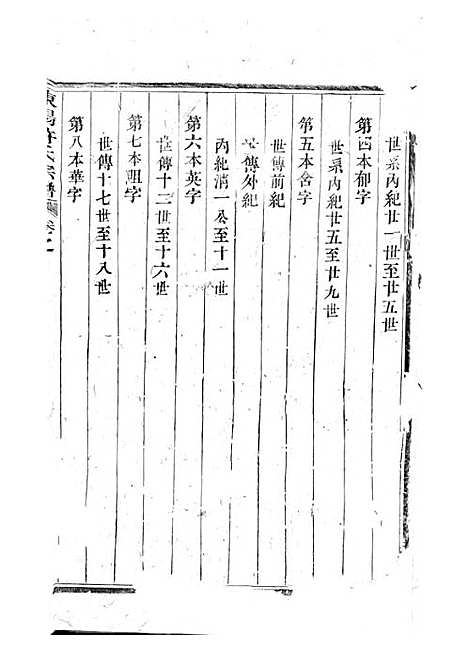 世系內紀廿一世至廿五世
第四本郁字
世系內紀廿五至廿九世
第五本含字
世傳前紀
世傳外紀
內紀清一公至十一世
第六本英字
世傳十二世至十六世
第七本咀字
世傳十七世至十八世
第八本華字
東陽許氏宗譜 卷之